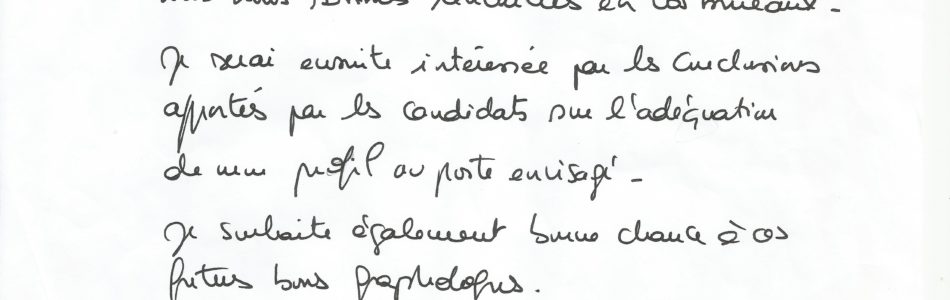 nous sommes en
Je serai ensuite intéressée par les conclusions
apportés par les candidats sur l'adéquation
de mon profil au poste envisagé -
Je souhaite également bonne chance à ces
futurs bons graphologues.